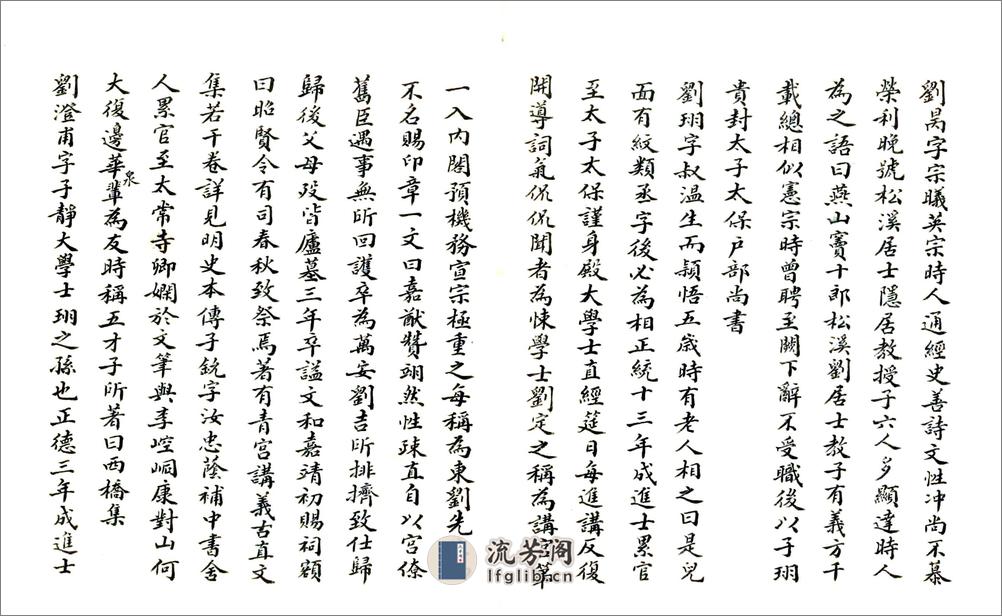 劉昺字宗曦英宗時人通經史善詩文性冲尚不慕
榮利晚號松溪居士隱居教授子六人多顯達時人
為之語曰燕山竇十郎松溪劉居士教子有義方千
載總相似憲宗時曾聘至闕下辭不受職後以子珝
貴封太子太保户部尚書
劉珝字叔温生而頴悟五歲時有老人相之曰是兒
面有紋類丞字後必為相正統十三年成進士累官
至太子太保謹身殿大學士直經筵日每進講反復
開導詞氣侃侃聞者為悚學士劉定之稱為講官第
一入内閣預機務宣宗極重之每稱為東劉先
不名賜印章一文曰嘉猷贊翊然性疎直自以宮僚
舊臣遇事無所回護卒為萬安劉吉所排擠致仕歸
歸後父母歿皆廬墓三年卒謚文和嘉靖初賜祠額
曰昭賢令有司春秋致祭焉著有青宮講義古直文
集若干卷詳見明史本傳子鈗字汝忠蔭補中書舍
人累官至太常寺卿嫻於文筆與李崆峒康對山何
大復邊華泉輩為友時稱五才子所著曰西橋集
劉澄甫字子靜大學士珝之孫也正德三年成進士
流芳閣
lfglib.cn